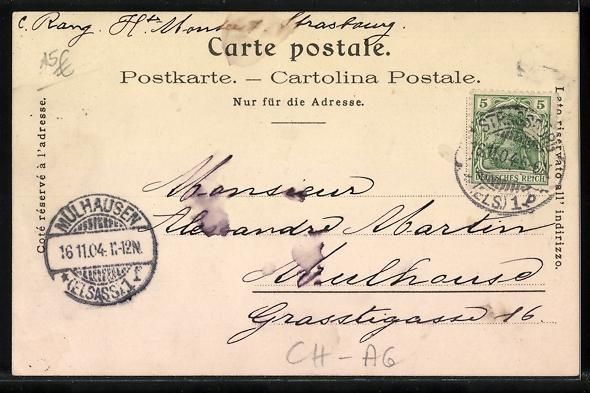 c. Rang. Hte Mon Strasbourg.
Carte postale.
Postkarte. – Cartolina Postale.
Nur für die Adresse.
Coté réservé à l'adresse.
Lato riservato all' indirizzo.
5 5
DEUTSCHES REICH
STRASSBURG
16.11.04
(ELS) 1.b
MÜLHAUSEN
16 11.04. 11-12N.
*(ELSASS) 1 f
Monsieur
Alexandre Martin
Mulhouse
Grasstigasse 16.
CH-AG